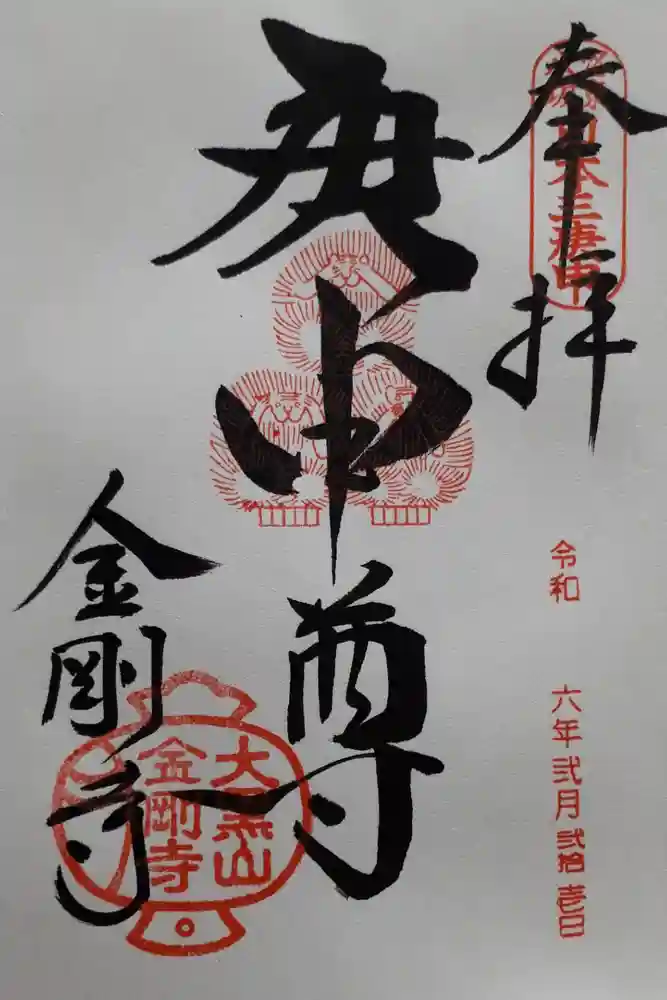 奉拝
日本三庚申
令和 六年 弐月 弐拾壱日
庚申尊
金剛寺
大黒山
金剛寺